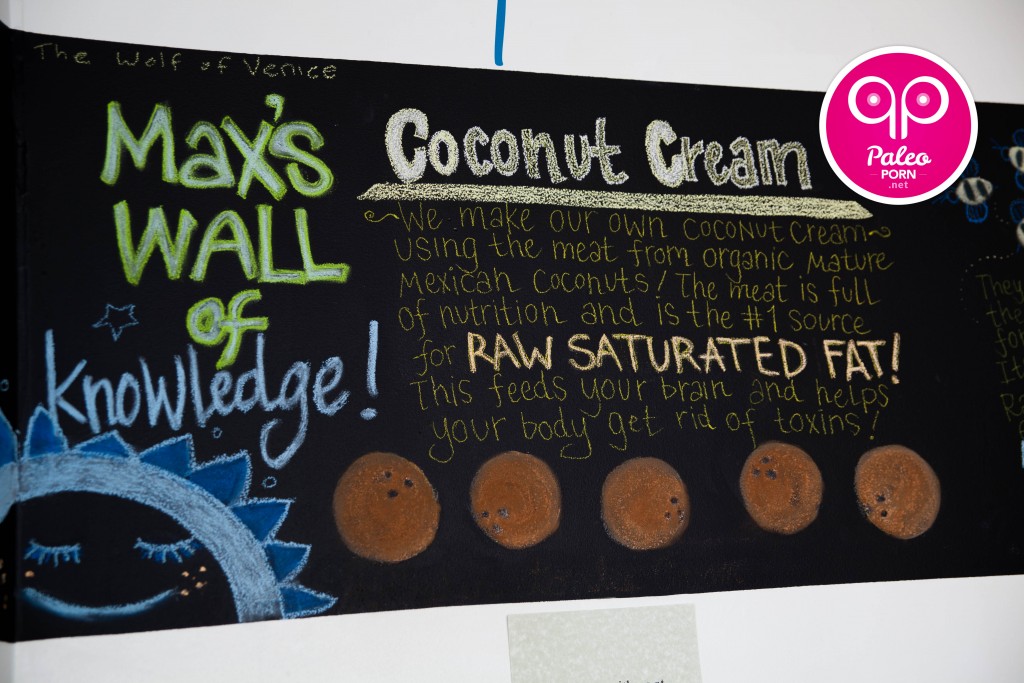 The Wolf of Venice
Max's
WALL
of
knowledge!
Coconut Cream
We make our own coconut cream
using the meat from organic mature
Mexican coconuts! The meat is full
of nutrition and is the #1 source
for RAW SATURATED FAT!
This feeds your brain and helps
your body get rid of toxins!
They
the
for
It
Ra
PALEO
PORN
.net